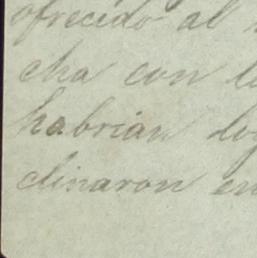 ofrecido al
cha con l
habrian lo
clinaron en